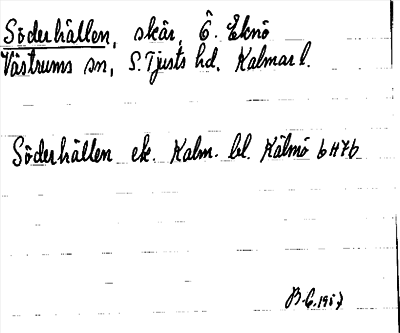 Söderhällen, skär, Ö. Eknö
Västrums sn, S. Tjusts hd, Kalmar l.
Söderhällen ek. Kalm. bl. Kälmö 6H7b
B.C. 1957